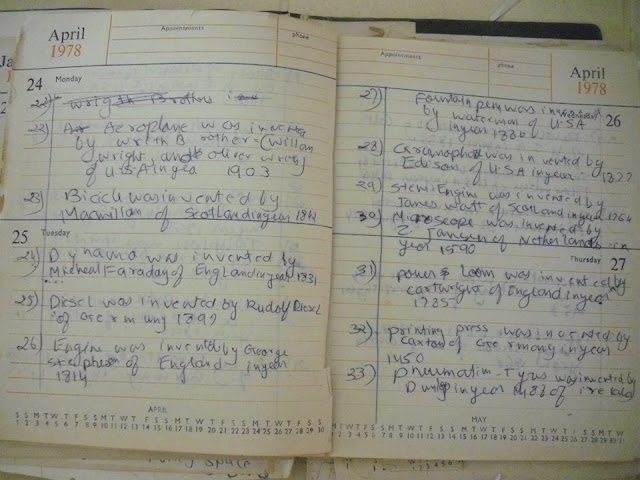 April
1978
Appointments
phone
24 Monday
22) Wrigth Brothers i
22) A Aeroplane was invented
by writh Brother (William
wright, and oliver writ)
of U.S.A in yea 1903
23) Bicicle was invented by
Macmillan of Scotland in year 18
25 Tuesday
24) Dynamo was invented by
Micheal Faraday of England in year 1831
25) Diesel was invented by Rudolf Diesel
of Germany 1892
26) Engine was invented by George
Stephes of England in year
1814
APRIL
S S M T W T F S S M T W T F S S M T W T F S S M T W T F S S
1 2 3 4 5 6 7 8 9 10 11 12 13 14 15 16 17 18 19 20 21 22 23 24 25 26 27 28 29 30
Appointments
phone
April
1978
Wednesday 26
27) Fountain pen was invented
by waterman of U.S.A
in year 188
28) Gramophone was invented by
Edison of U.S.A in year 18
29) Stem Engine was invented by
James watt of Scotland in year 1764
30) Microscope was invented by
Z. Jansen of Netherlands in
year 1590
Thursday 27
31) power loom was invented by
cartwright of England in year
1785
32) printing press was invented by
caxton of Germany in year
1450
33) pneumatim-Tyres was invented by
Dunlop in year of ireland
MAY